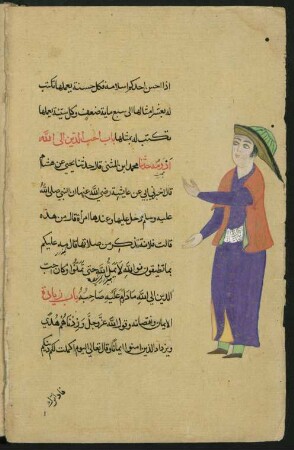 اذا احسن احدكم اسلامه فكل حسنة يعملها تكتب
له بعشر امثالها الى سبع ماية ضعف وكل سيئة يعملها
تكتب له بمثلها باب احب الدين الى الله
محمد بن المثنى قال حدثنا يحيى عن هشام
قال اخبرني ابي عن عايشة رضي الله عنها ان النبي صلى الله
عليه وسلم دخل عليها وعندها امرأة قال من هذه
قالت فلانة تذكر من صلاتها قال مه عليكم
بما تطيقون فوالله لا يمل الله حتى تملوا وكان احب
الدين الى الله ما داوم عليه صاحبه باب زيادة
الايمان ونقصانه وقول الله عز وجل وزدناهم هدى
ويزداد الذين امنوا ايمانا وقال تعالى اليوم اكملت لكم دينكم